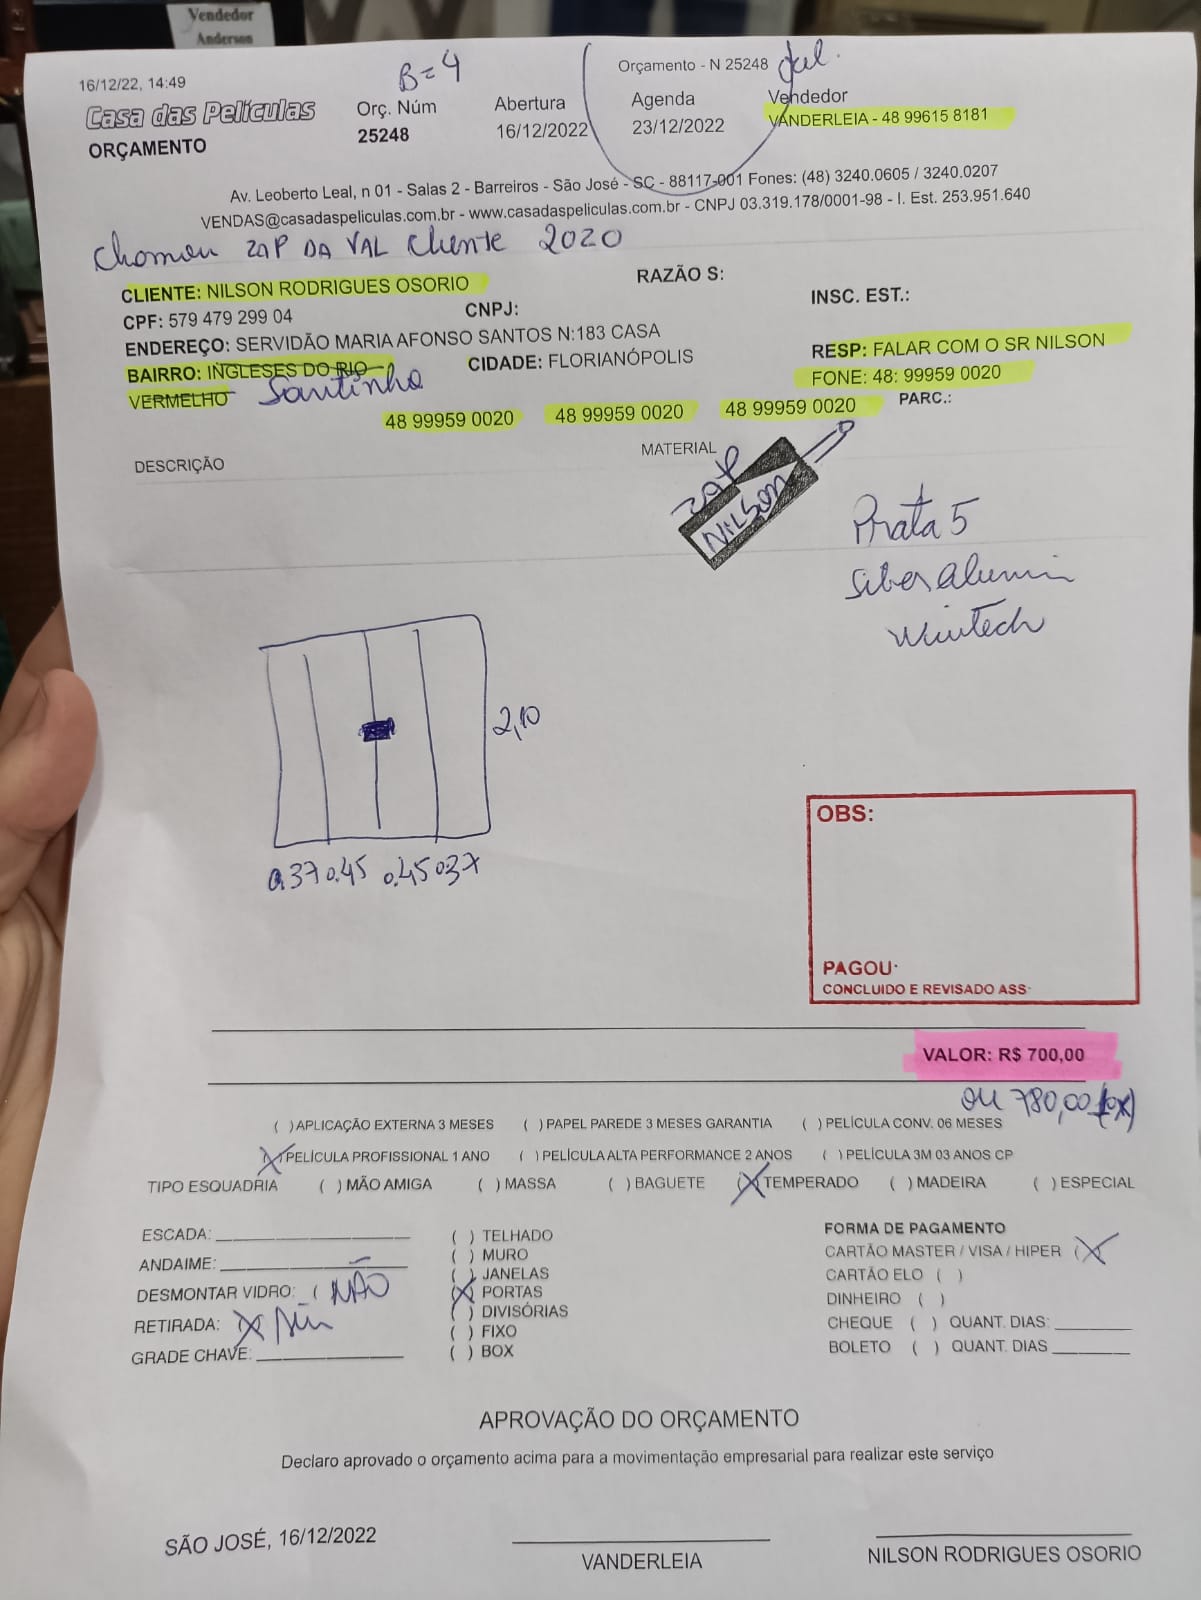 Vendedor
Anderson
16/12/22, 14:49
B=4
Orçamento - N 25248
Casa das Películas
ORÇAMENTO
Orç. Núm
25248
Abertura
16/12/2022
Agenda
23/12/2022
Vendedor
VANDERLEIA - 48 99615 8181
Av. Leoberto Leal, n 01 - Salas 2 - Barreiros - São José - SC - 88117-001 Fones: (48) 3240.0605 / 3240.0207
VENDAS@casadaspeliculas.com.br - www.casadaspeliculas.com.br - CNPJ 03.319.178/0001-98 - I. Est. 253.951.640
Chomou ZAP DA VAL Cliente 2020
CLIENTE: NILSON RODRIGUES OSORIO
RAZÃO S:
CPF: 579 479 299 04
CNPJ:
INSC. EST.:
ENDEREÇO: SERVIDÃO MARIA AFONSO SANTOS N:183 CASA
BAIRRO: INGLESES DO RIO VERMELHO Santinho
CIDADE: FLORIANÓPOLIS
RESP: FALAR COM O SR NILSON
FONE: 48: 99959 0020
48 99959 0020 48 99959 0020 48 99959 0020
PARC.:
DESCRIÇÃO
MATERIAL
zap
NILSON
Prata 5
Wintech
2,10
0.37 0.45 0.45 0.37
OBS:
PAGOU:
CONCLUIDO E REVISADO ASS:
VALOR: R$ 700,00
ou 780,00 (10x)
( ) APLICAÇÃO EXTERNA 3 MESES ( ) PAPEL PAREDE 3 MESES GARANTIA ( ) PELÍCULA CONV. 06 MESES
(X) PELÍCULA PROFISSIONAL 1 ANO ( ) PELÍCULA ALTA PERFORMANCE 2 ANOS ( ) PELÍCULA 3M 03 ANOS CP
TIPO ESQUADRIA ( ) MÃO AMIGA ( ) MASSA ( ) BAGUETE (X) TEMPERADO ( ) MADEIRA ( ) ESPECIAL
ESCADA:
ANDAIME:
DESMONTAR VIDRO: ( NÃO
RETIRADA: X Sim
GRADE CHAVE:
( ) TELHADO
( ) MURO
( ) JANELAS
(X) PORTAS
( ) DIVISÓRIAS
( ) FIXO
( ) BOX
FORMA DE PAGAMENTO
CARTÃO MASTER / VISA / HIPER (X)
CARTÃO ELO ( )
DINHEIRO ( )
CHEQUE ( ) QUANT. DIAS:
BOLETO ( ) QUANT. DIAS
APROVAÇÃO DO ORÇAMENTO
Declaro aprovado o orçamento acima para a movimentação empresarial para realizar este serviço
SÃO JOSÉ, 16/12/2022
VANDERLEIA
NILSON RODRIGUES OSORIO